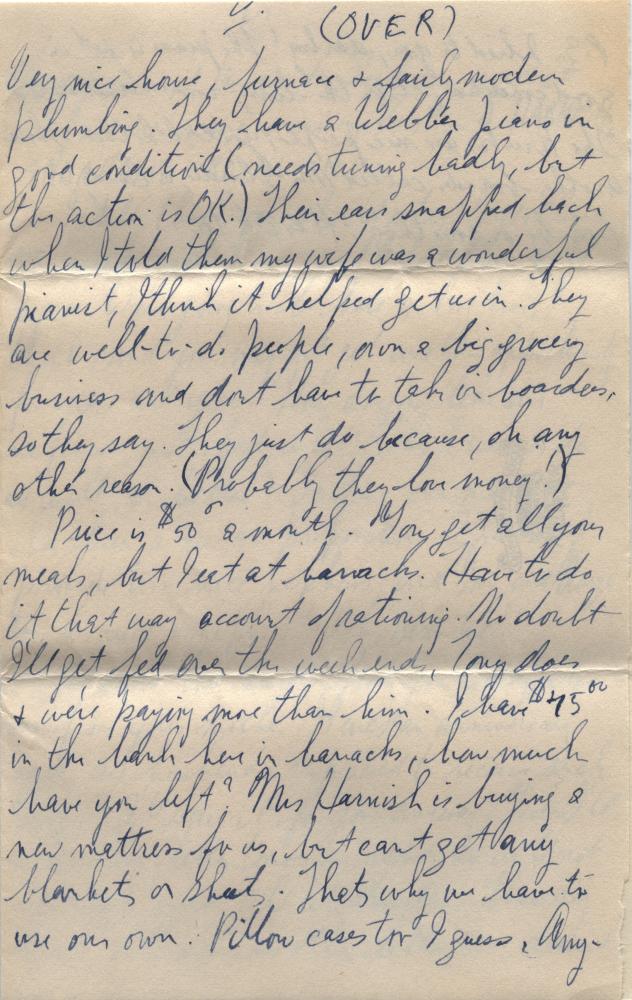 V. (OVER)
Very nice house, furnace & fairly modern
plumbing. They have a Webber piano in
good condition (needs tuning badly, but
the action is OK.) Their ears snapped back
when I told them my wife was a wonderful
pianist, I think it helped get us in. They
are well-to-do people, own a big grocery
business and dont have to take in boarders,
so they say. They just do because, oh any
other reason. (Probably they love money!)
Price is $50 a month. You get all your
meals, but I eat at barracks. Have to do
it that way account of rationing. No doubt
I'll get fed over the week ends, Tony does
& we're paying more than him. I have $45 00
in the bank here in barracks, how much
have you left? Mrs Harnish is buying a
new mattress for us, but cant get any
blankets or sheets. Thats why we have to
use our own. Pillow cases too I guess. Any-